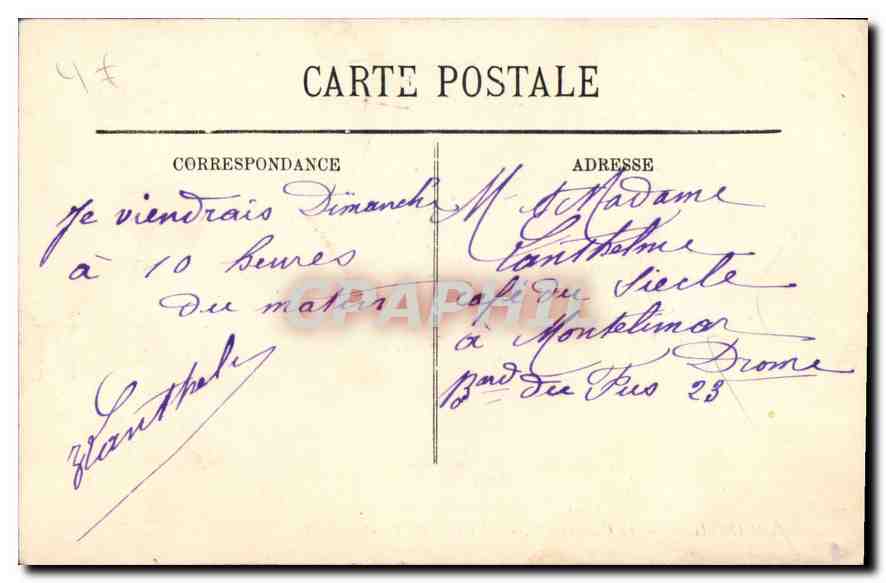 4 F
CARTE POSTALE
CORRESPONDANCE
Je viendrais Dimanche
à 10 heures
du matin
Lanthelme
ADRESSE
M & Madame
Lanthelme
café du Siecle
à Montelimar
Drome
Bard du Fus 23
CPAPHIL